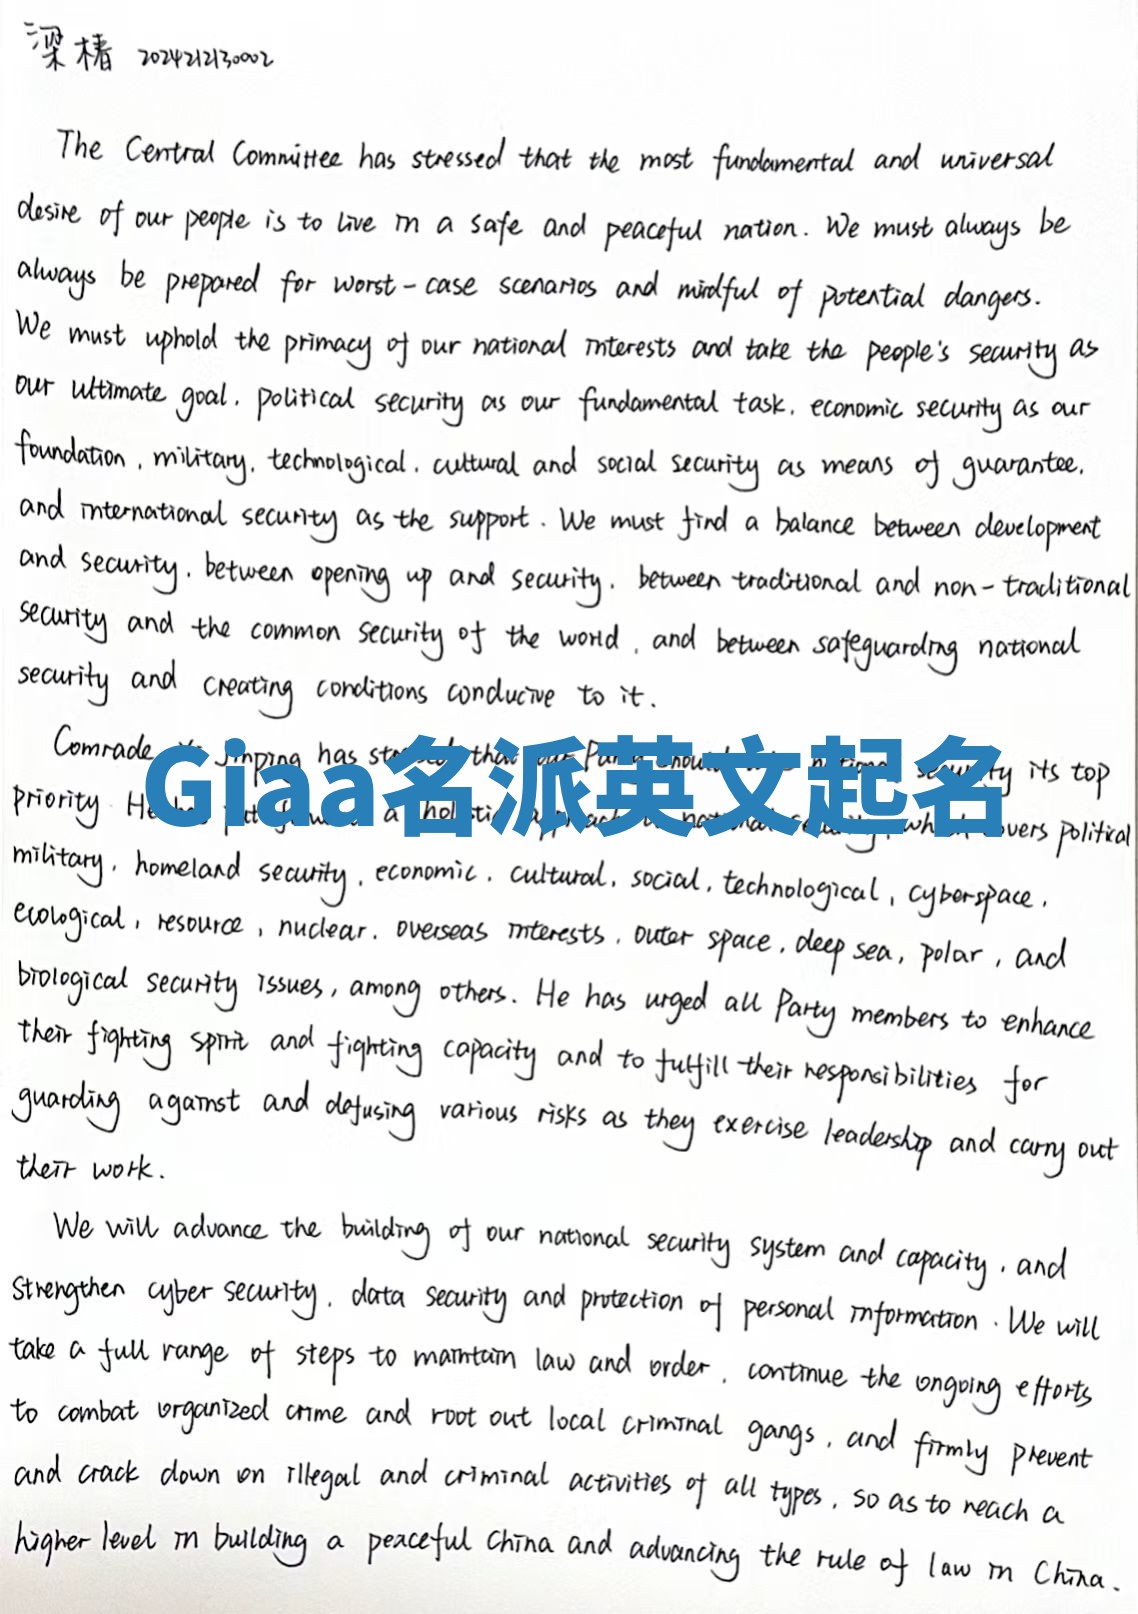 梁椿 2024212130002
The Central Committee has stressed that the most fundamental and universal
desire of our people is to live in a safe and peaceful nation. We must always be
always be prepared for worst-case scenarios and mindful of potential dangers.
We must uphold the primacy of our national interests and take the people's security as
our ultimate goal, political security as our fundamental task, economic security as our
foundation, military, technological, cultural and social security as means of guarantee,
and international security as the support. We must find a balance between development
and security, between opening up and security, between traditional and non-traditional
security and the common security of the world, and between safeguarding national
security and creating conditions conducive to it.
Comrade Jinping has that Party national security its top
Giaa名派英文起名
priority He a holistic national which covers political
military, homeland security, economic, cultural, social, technological, cyberspace,
ecological, resource, nuclear, overseas interests, outer space, deep sea, polar, and
biological security issues, among others. He has urged all Party members to enhance
their fighting spirit and fighting capacity and to fulfill their responsibilities for
guarding against and defusing various risks as they exercise leadership and carry out
their work.
We will advance the building of our national security system and capacity, and
strengthen cyber security, data security and protection of personal information. We will
take a full range of steps to maintain law and order, continue the ongoing efforts
to combat organized crime and root out local criminal gangs, and firmly prevent
and crack down on illegal and criminal activities of all types, so as to reach a
higher level in building a peaceful China and advancing the rule of law in China.